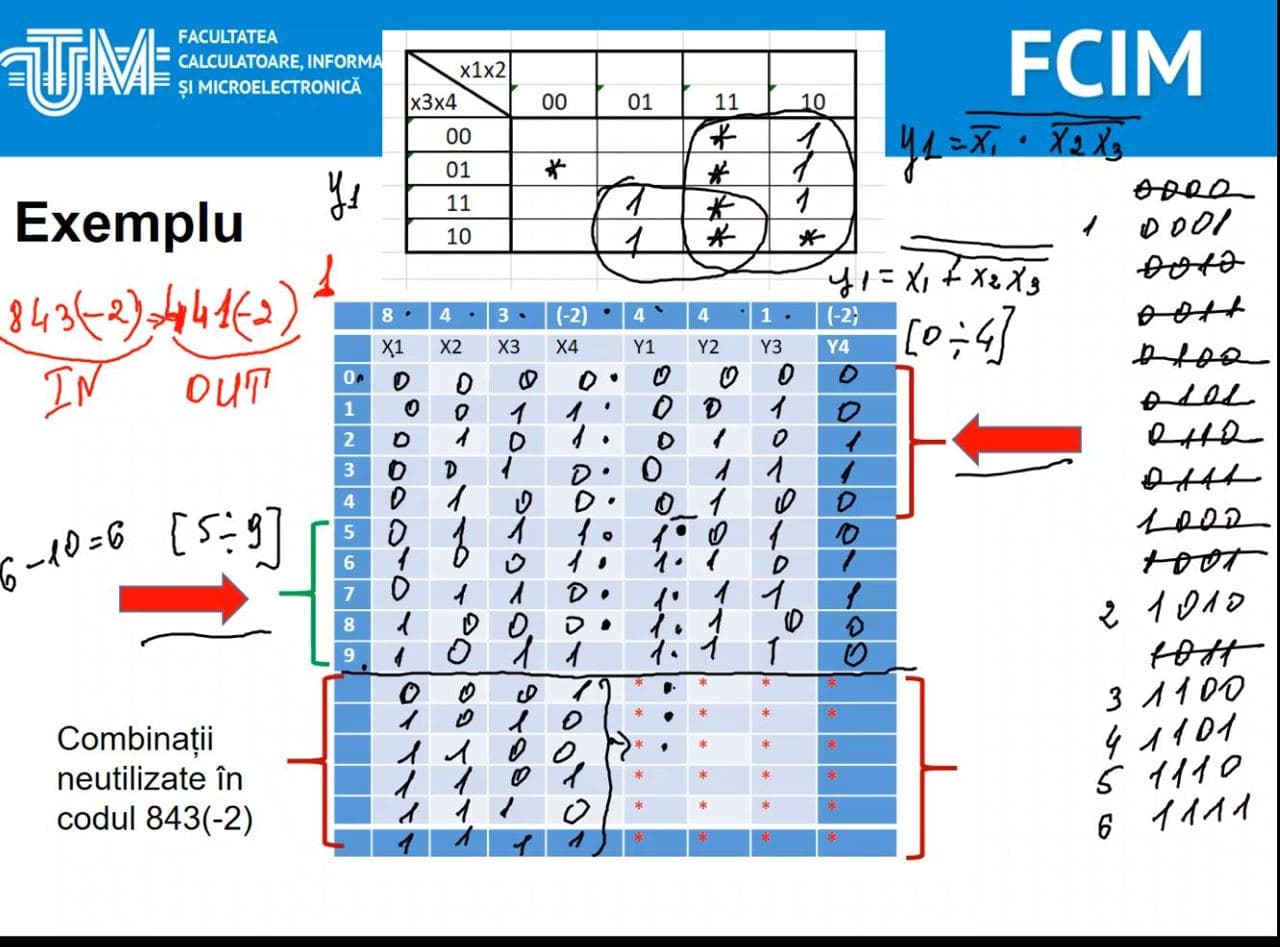 FACULTATEA
CALCULATOARE, INFORMA
ȘI MICROELECTRONICĂ
UTM
FCIM
x1x2
x3x4 00 01 11 10
00 * 1
01 * * 1
11 1 * 1
10 1 * *
y1
y1 = x̿₁ · x̅₂x̅₃
y1 = x1 + x2 x3
Exemplu
843(-2) → 441(-2) 1
IN OUT
[0÷4]
8 4 3 (-2) 4 4 1 (-2)
X1 X2 X3 X4 Y1 Y2 Y3 Y4
0 0 0 0 0 0 0 0 0
1 0 0 1 1 0 0 1 0
2 0 1 0 1 0 1 0 1
3 0 0 1 0 0 1 1 1
4 0 1 0 0 0 1 0 0
5 0 1 1 1 1 0 1 0
6 1 0 0 1 1 1 0 1
7 0 1 1 0 1 1 1 1
8 1 0 0 0 1 1 0 0
9 1 0 1 1 1 1 1 0
0 0 0 1 * * * *
1 0 1 0 * * * *
1 1 0 0 * * * *
1 1 0 1 * * * *
1 1 1 0 * * * *
1 1 1 1 * * * *
6-10=6 [5÷9]
Combinații
neutilizate în
codul 843(-2)
0000
1 0001
0010
0011
0100
0101
0110
0111
1000
1001
2 1010
1011
3 1100
4 1101
5 1110
6 1111